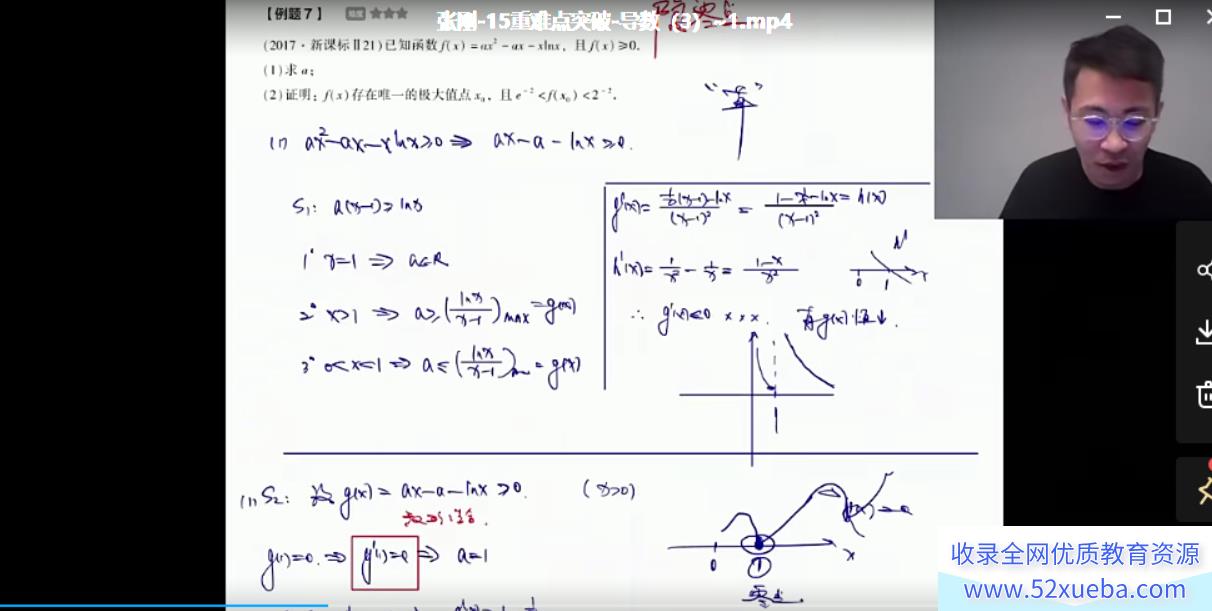 【例题7】 难度 ★★★
张刚-15重难点突破-导数（3）~1.mp4
(2017·新课标Ⅱ21)已知函数f(x)=ax²-ax-xlnx,且f(x)≥0.
(1)求a;
(2)证明:f(x)存在唯一的极大值点x₀,且e⁻²<f(x₀)<2⁻².
(1) ax²-ax-xlnx≥0 ⇒ ax-a-lnx≥0.
S₁: a(x-1)≥lnx
1° x=1 ⇒ a∈R
2° x>1 ⇒ a≥(lnx/(x-1))max=g(x)
3° 0<x<1 ⇒ a≤(lnx/(x-1))=g(x)
g'(x)=(1/x(x-1)-lnx)/(x-1)²=(1-1/x-lnx=h(x))/(x-1)²
h'(x)=1/x²-1/x=(1-x)/x²
h'
0 1 x
∴ g'(x)<0 ×××. g(x)恒↓.
1
(1) S₂: 设g(x)=ax-a-lnx≥0. (x>0)
g(1)=0. ⇒ g'(1)=0 ⇒ a=1
0 1 x
零点
收录全网优质教育资源
www.52xueba.com